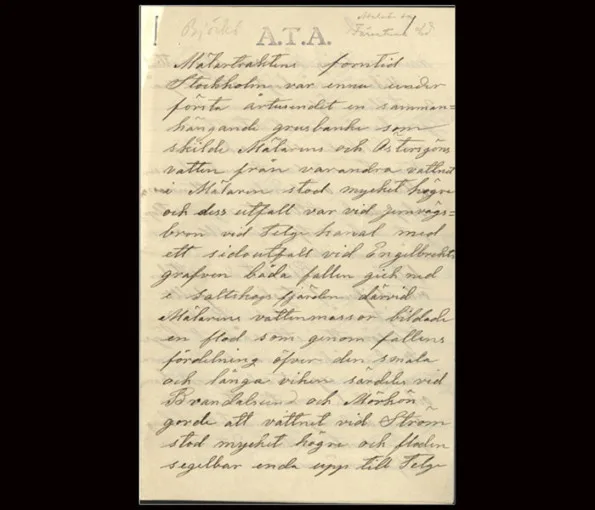 Björkö
A.T.A.
Mälartraktens forntid
Stockholm var ennu
första årtusendet en samman=
hängande grusbanke som
skilde Mälarens och Östersjöns
vatten från varandra vattnet
i Mälaren stod mycket högre
och dess utfall var vid jernvägs=
bron vid Telge kanal med
ett sidoutfall vid Engelbrekts
grafven båda fallen gick ned
i saltskogsfjärden därvid
Mälarens vattenmassor bildade
en flod som genom fallens
fördelning öfver den smala
och långa viken särdeles vid
Brandalsund och Mörkön
gorde att vattnet vid Ström
stod mycket högre och floden
segelbar enda upp till Telge